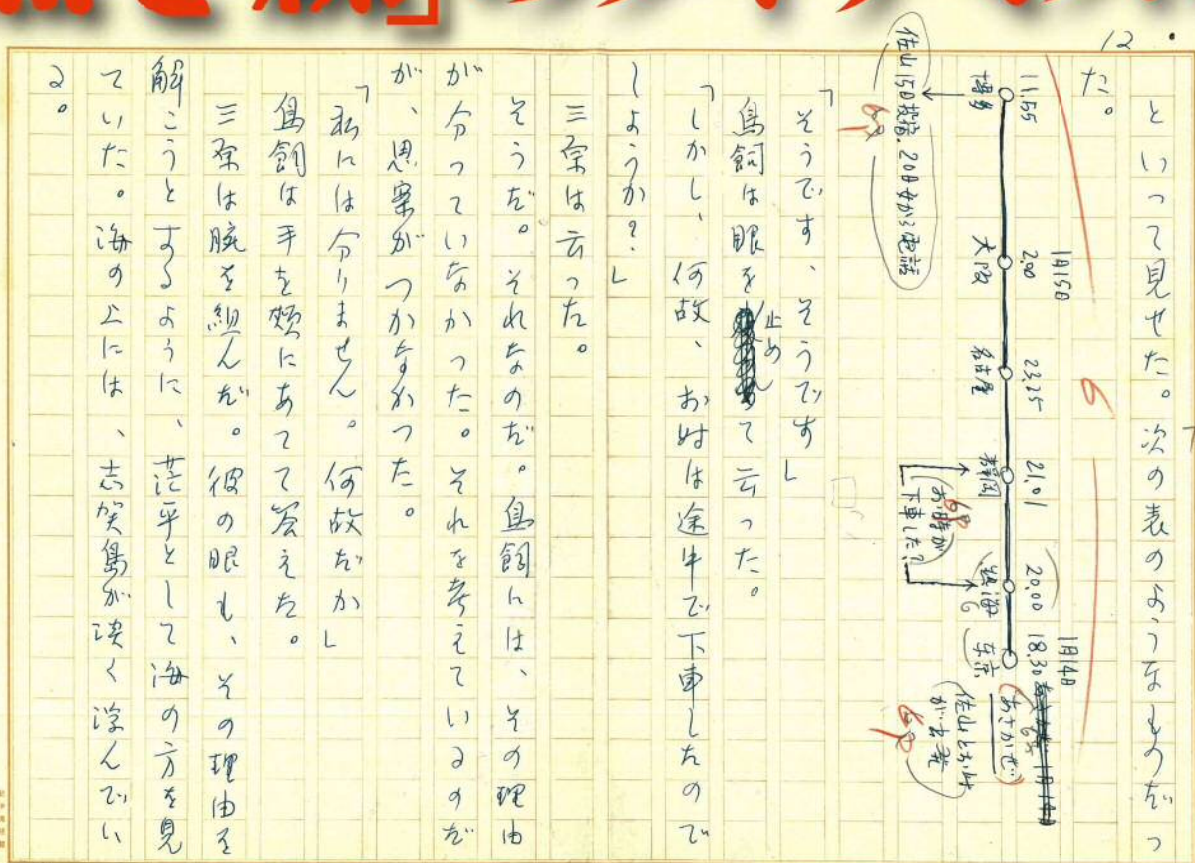 12
といって見せた。次の表のようなものだっ
た。
1月14日
18.30
東京
あさかぜ
佐山とお時
が出発
20.00
熱海
お時が
下車した?
21.01
静岡
23.25
名古屋
1月15日
2.00
大阪
11.55
博多
佐山15日投宿、20日女から電話
「そうです、そうです」
鳥飼は眼を止めて云った。
「しかし、何故、お時は途中で下車したので
しようか?」
三原は云った。
そうだ。それなのだ。鳥飼には、その理由
が分っていなかった。それを考えているのだ
が、思案がつかなかった。
「私には分りません。何故だか」
鳥飼は手を頬にあてて答えた。
三原は腕を組んだ。彼の眼も、その理由を
解こうとするように、茫乎として海の方を見
ていた。海の上には、志賀島が淡く浮んでい
る。